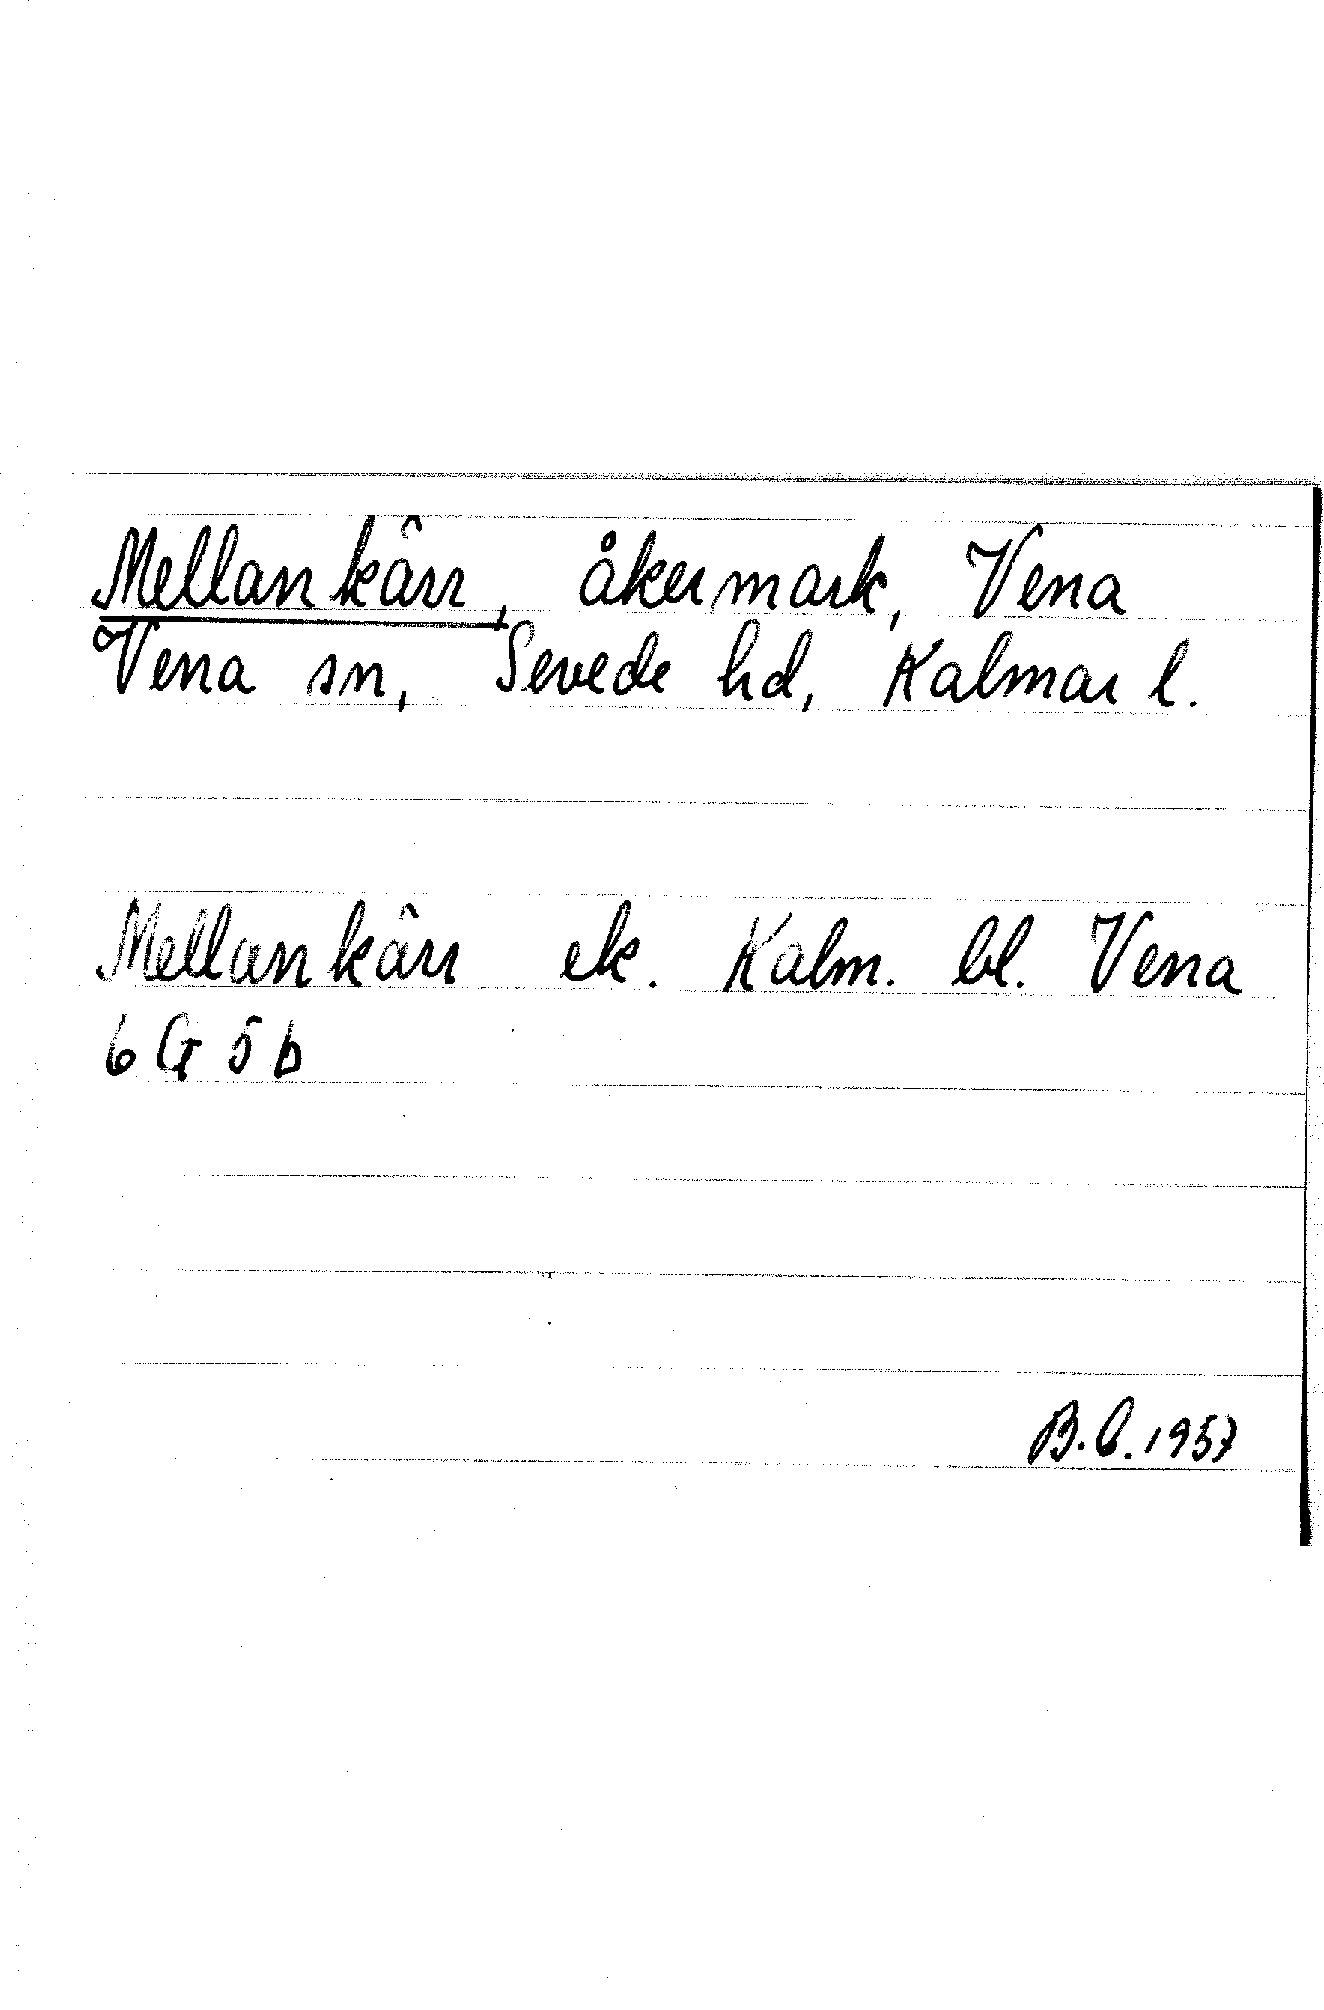 Mellankärr, åkermark, Vena
Vena sn, Sevede hd, Kalmar l.
Mellankärr ek. Kalm. bl. Vena
6 G 5 b
B.C. 1957